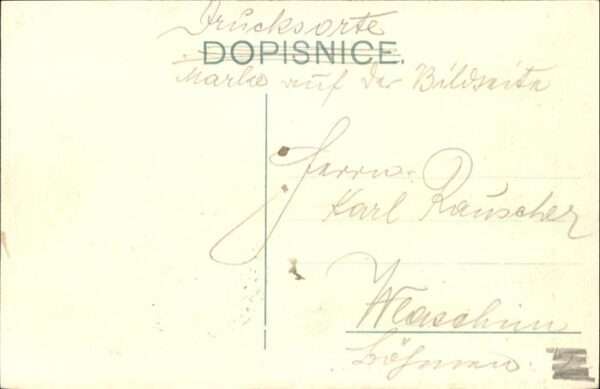 Drucksorte
DOPISNICE.
Marke auf der Bildseite
Herrn
Karl Rauscher
Wlaschim
Böhmen.